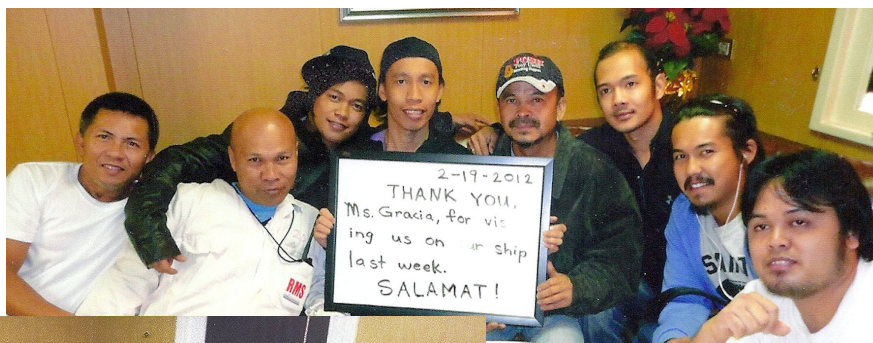 2-19-2012
THANK YOU,
Ms. Gracia, for vis
ing us on ur ship
last week.
SALAMAT!
RMS